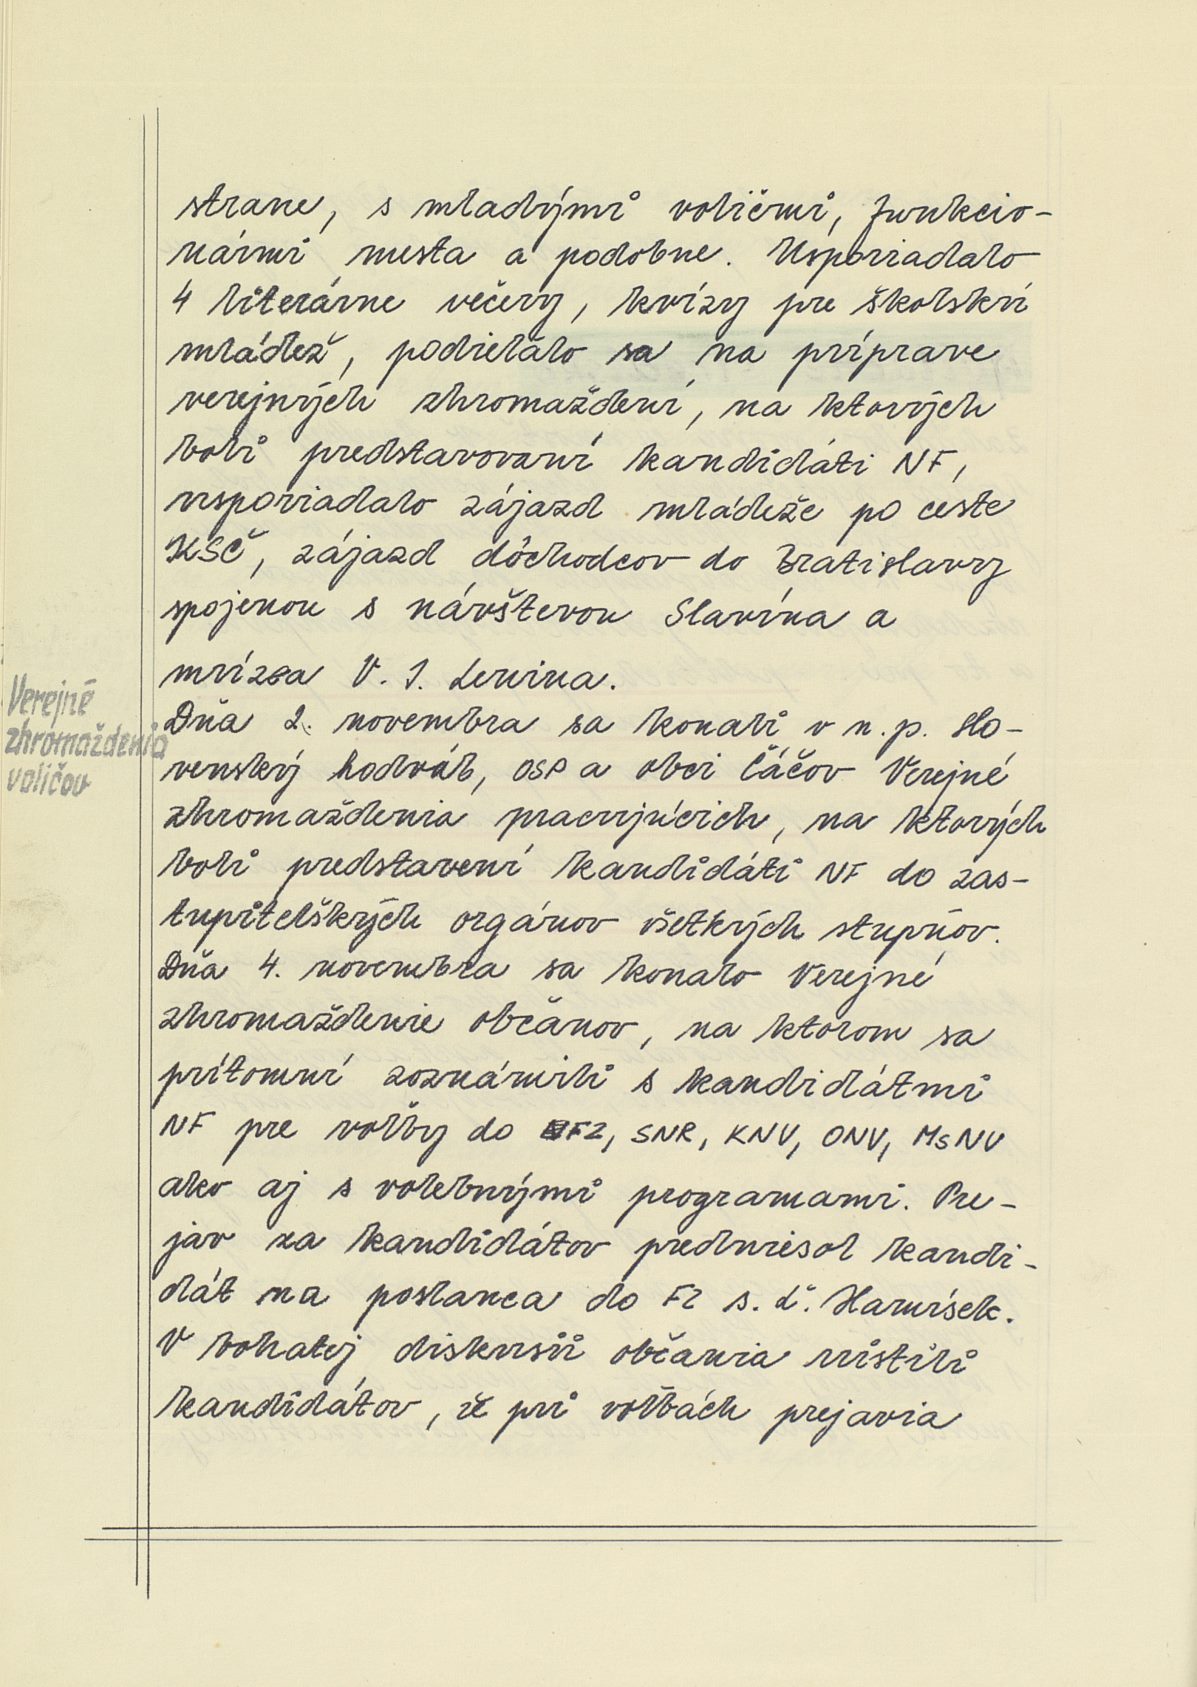 strane, s mladými voličmi, funkcio-
nármi mesta a podobne. Usporiadalo
4 literárne večery, kvízy pre školskú
mládež, podieľalo sa na príprave
verejných zhromaždení, na ktorých
boli predstavovaní kandidáti NF,
usporiadalo zájazd mládeže po ceste
KSČ, zájazd dôchodcov do Bratislavy
spojenou s návštevou Slavína a
múzea V. I. Lenina.
Verejné
zhromaždenia
voličov
Dňa 2. novembra sa konali v n.p. Slo-
venský hodváb, OSP a obci Čáčov Verejné
zhromaždenia pracujúcich, na ktorých
boli predstavení kandidáti NF do zas-
tupiteľských orgánov všetkých stupňov.
Dňa 4. novembra sa konalo Verejné
zhromaždenie občanov, na ktorom sa
prítomní zoznámili s kandidátmi
NF pre voľby do FZ, SNR, KNV, ONV, MsNV
ako aj s volebnými programami. Pre-
jav za kandidátov predniesol kandi-
dát na poslanca do FZ s. Ľ. Hanúsek.
V bohatej diskusii občania uistili
kandidátov, že pri voľbách prejavia